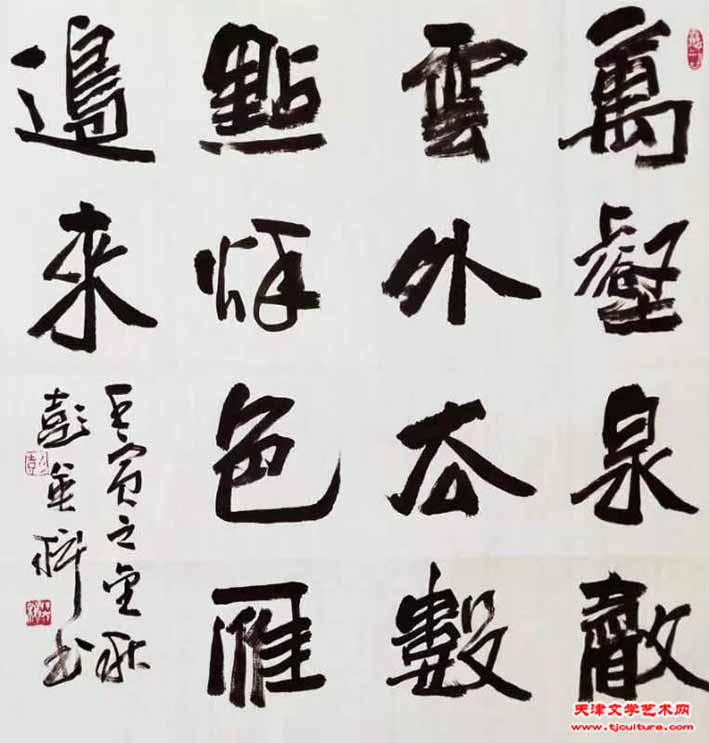 萬壑泉聲
雲外去數
點秋色雁
邊來
壬寅之金秋
彭 科书
天津文学艺术网
www.tjculture.com